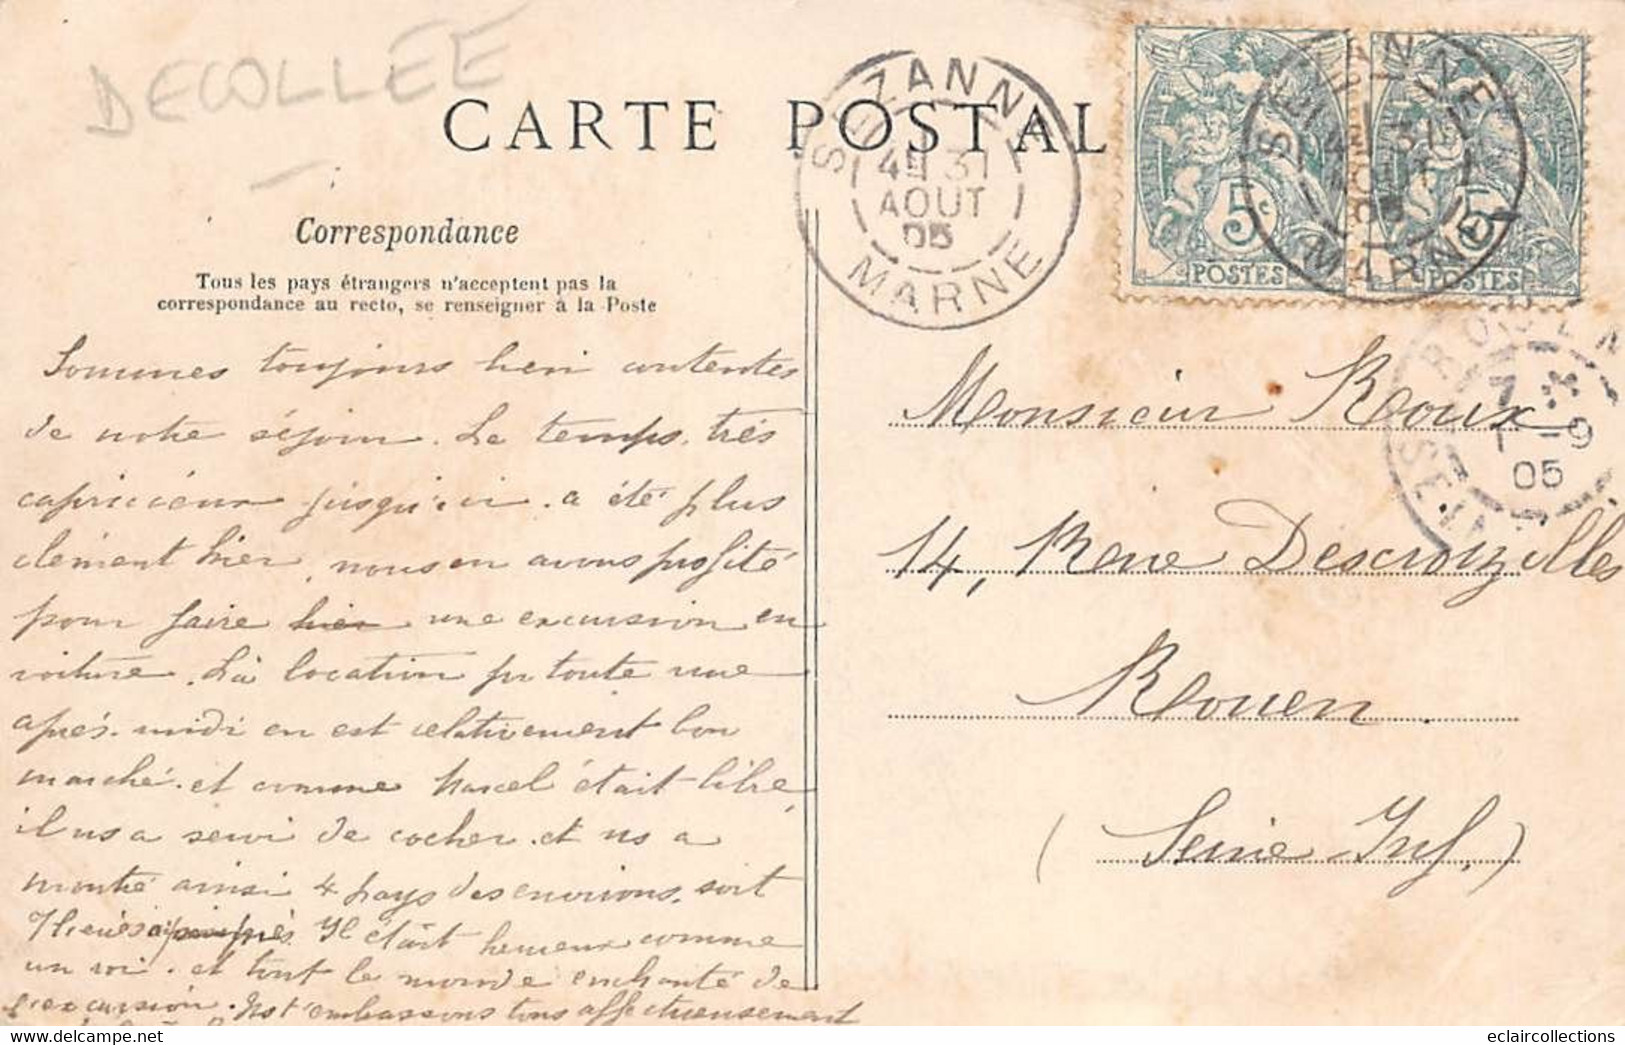 DECOLLÉE
CARTE POSTAL
SEZANNE
4E 31
AOUT
05
MARNE
5c
POSTES
5
POSTES
SEZANNE
31
MARNE
Correspondance
Tous les pays étrangers n'acceptent pas la
correspondance au recto, se renseigner à la Poste
ROUEN
7
1 -9
05
SEINE
Sommes toujours bien contentes
de notre séjour. Le temps, très
capricieux jusqu'ici, a été plus
clément hier, nous en avons profité
pour faire hier une excursion en
voiture. La location pr toute une
après-midi en est relativement bon
marché. et comme Marcel était libre
il ns a servi de cocher. et ns a
montré ainsi 4 pays des environs. soit
7 lieues à peu près. Il était heureux comme
un roi. et tout le monde enchanté de
l'excursion. Ns t'embrassons tous affectueusement
Monsieur Roux
14, Rue Descroizilles
Rouen.
(Seine-Inf.)
Delcampe.net
eclaircollections